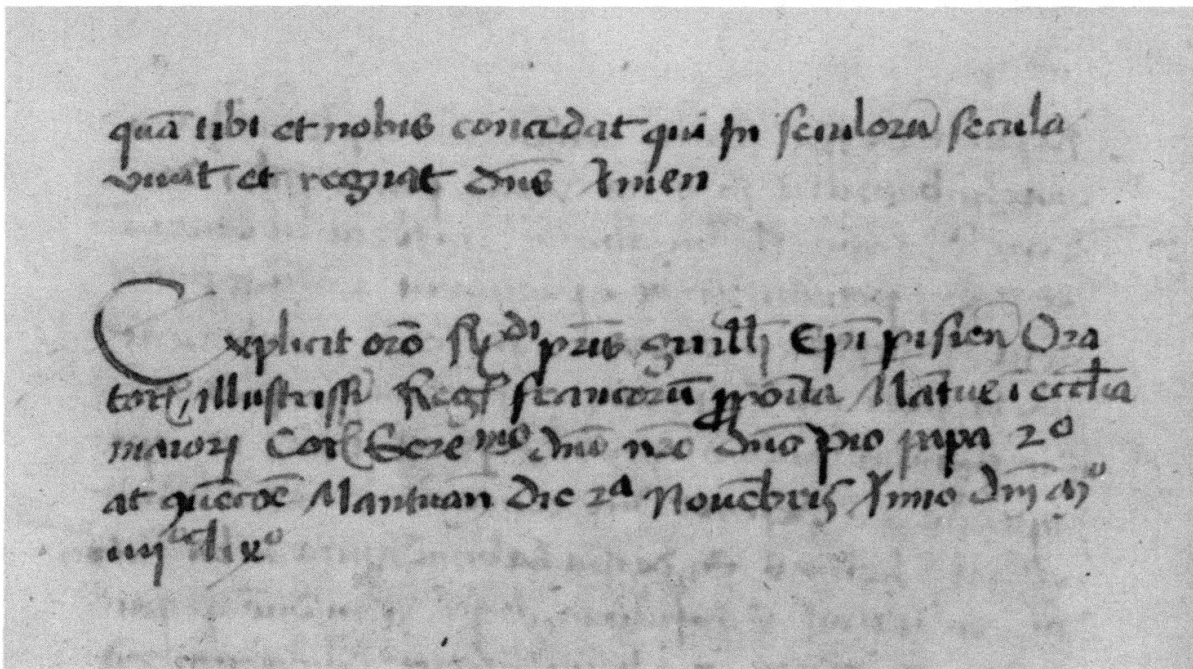 quā tibi et nobis concedat qui in seculorū secula
vivat et regnat dn̄s Amen
Explicit orō Rdi pr̄is guillī Epī pisieñ Ora
torꝭ illustrissī Regꝭ francorū ꝓpoīta Mātue ī ecclīa
maiori Corā Sere mo dn̄o nr̄o dn̄o pio papa 2º
at Mantuan die 2ª Novēbris Anno dn̄i Mº
iiijc lixº